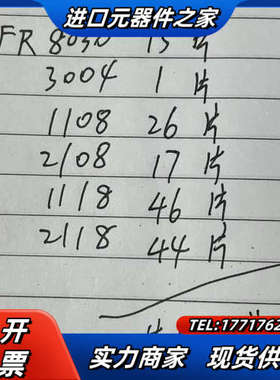 进口元器件之家
FR 8030 15 片
3004 1 片
1108 26 片
2108 17 片
1118 46 片
2118 44 片
开
票
TEL:1771762
实力商家 现货供